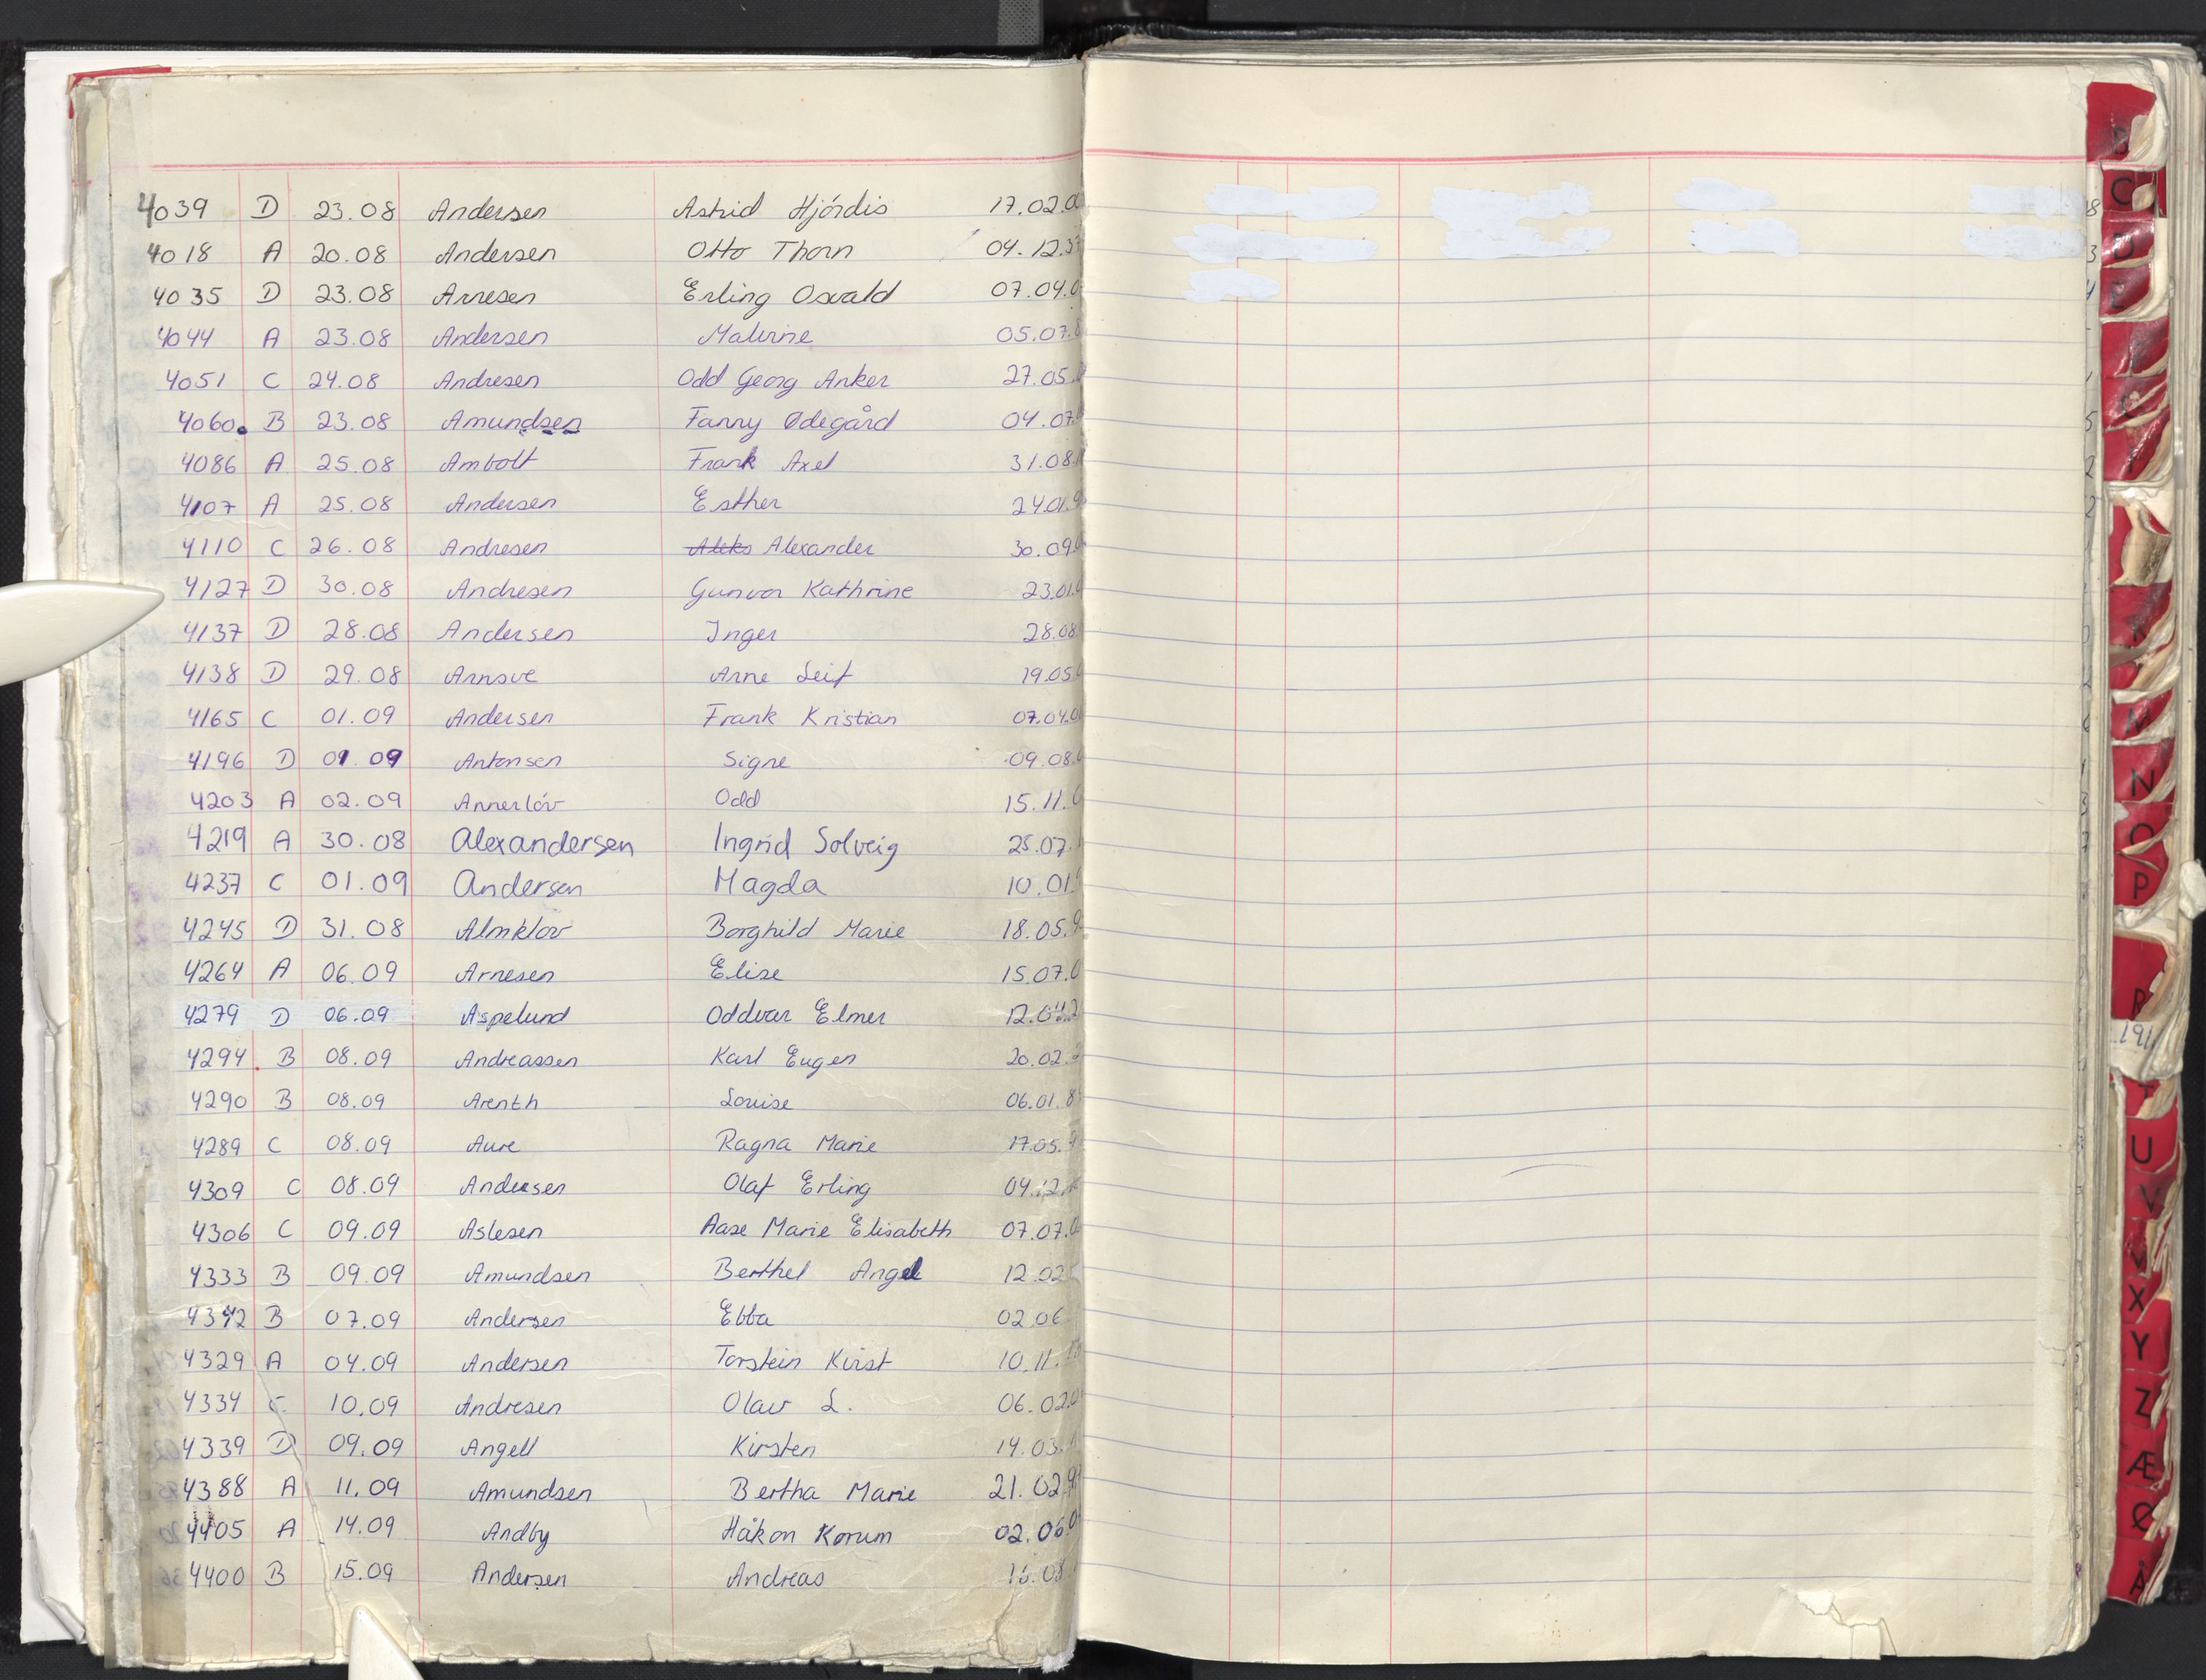 4039 D 23.08 Andersen Astrid Hjördis 17.02.0
4018 A 20.08 Andersen Otto Thorn 04.12.3
4035 D 23.08 Arnesen Erling Osvald 07.04.0
4044 A 23.08 Andersen Malvine 05.07.
4051 C 24.08 Andresen Odd Georg Anker 27.05
4060. B 23.08 Amundsen Fanny Ødegård 04.07
4086 A 25.08 Ambolt Frank Axel 31.08
4107 A 25.08 Andersen Esther 24.01.9
4110 C 26.08 Andresen Aleks Alexander 30.09.
4127 D 30.08 Andresen Gunvor Kathrine 23.01.
4137 D 28.08 Andersen Inger 28.08
4138 D 29.08 Arnsve Arne Leif 19.05
4165 C 01.09 Andersen Frank Kristian 07.04.0
4196 D 01.09 Antonsen Signe 09.08.
4203 A 02.09 Annerlöv Odd 15.11.
4219 A 30.08 Alexandersen Ingrid Solveig 25.07.
4237 C 01.09 Andersen Magda 10.01
4245 D 31.08 Almklov Borghild Marie 18.05.9
4264 A 06.09 Arnesen Elise 15.07.0
4279 D 06.09 Aspelund Oddvar Elmer 12.04.2
4294. B 08.09 Andreassen Karl Eugen 20.02.
4290 B 08.09 Arenth Louise 06.01.8
4289 C 08.09 Aure Ragna Marie 17.05.
4309 C 08.09 Andersen Olaf Erling 04.12.
4306 C 09.09 Aslesen Aase Marie Elisabeth 07.07.0
4333 B 09.09 Amundsen Berthel Angel 12.02
4342 B 07.09 Andersen Ebba 02.06
4329 A 04.09 Andersen Torstein Kvist 10.11.
4334 C 10.09 Andresen Olav L. 06.02.0
4339 D 09.09 Angell Kirsten 14.03.
4388 A 11.09 Amundsen Bertha Marie 21.02.9
4405 A 14.09 Andby Håkon Korum 02.06.0
4400 B 15.09 Andersen Andreas 08
B
C
D
E
K
M
N
O
P
R
191
T
U
V
W
X
Y
Z
Æ
Ø
Å